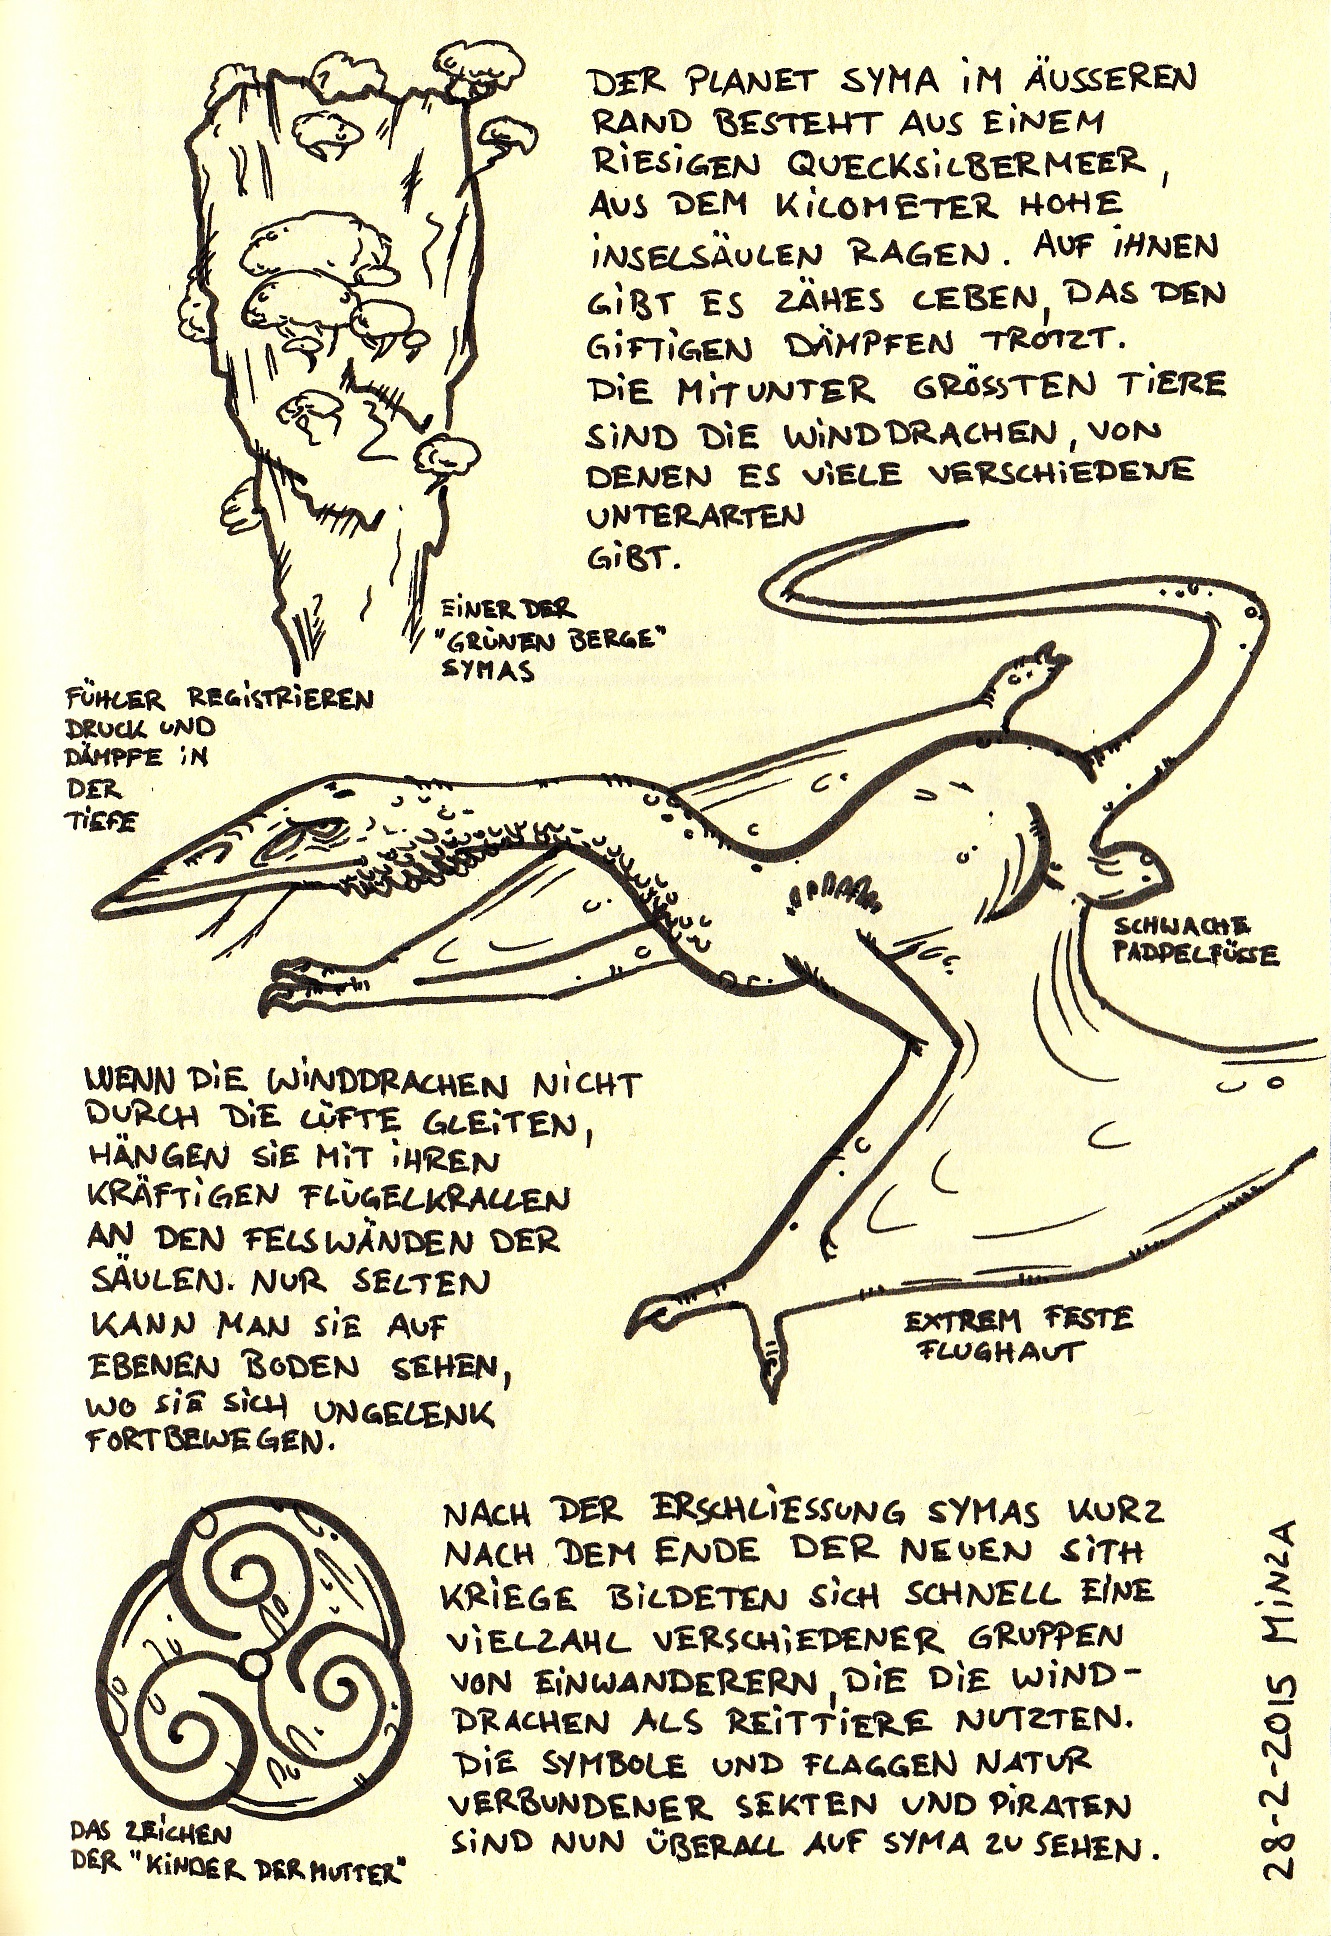 DER PLANET SYMA IM ÄUSSEREN
RAND BESTEHT AUS EINEM
RIESIGEN QUECKSILBERMEER,
AUS DEM KILOMETER HOHE
INSELSÄULEN RAGEN. AUF IHNEN
GIBT ES ZÄHES LEBEN, DAS DEN
GIFTIGEN DÄMPFEN TROTZT.
DIE MITUNTER GRÖSSTEN TIERE
SIND DIE WINDDRACHEN, VON
DENEN ES VIELE VERSCHIEDENE
UNTERARTEN
GIBT.
EINER DER
"GRÜNEN BERGE"
SYMAS
FÜHLER REGISTRIEREN
DRUCK UND
DÄMPFE IN
DER
TIEFE
SCHWACHE
PADDELFÜSSE
WENN DIE WINDDRACHEN NICHT
DURCH DIE LÜFTE GLEITEN,
HÄNGEN SIE MIT IHREN
KRÄFTIGEN FLÜGELKRALLEN
AN DEN FELSWÄNDEN DER
SÄULEN. NUR SELTEN
KANN MAN SIE AUF
EBENEN BODEN SEHEN,
WO SIE SICH UNGELENK
FORTBEWEGEN.
EXTREM FESTE
FLUGHAUT
NACH DER ERSCHLIESSUNG SYMAS KURZ
NACH DEM ENDE DER NEUEN SITH
KRIEGE BILDETEN SICH SCHNELL EINE
VIELZAHL VERSCHIEDENER GRUPPEN
VON EINWANDERERN, DIE DIE WIND-
DRACHEN ALS REITTIERE NUTZTEN.
DIE SYMBOLE UND FLAGGEN NATUR
VERBUNDENER SEKTEN UND PIRATEN
SIND NUN ÜBERALL AUF SYMA ZU SEHEN.
DAS ZEICHEN
DER "KINDER DER MUTTER"
28-2-2015 MINZA